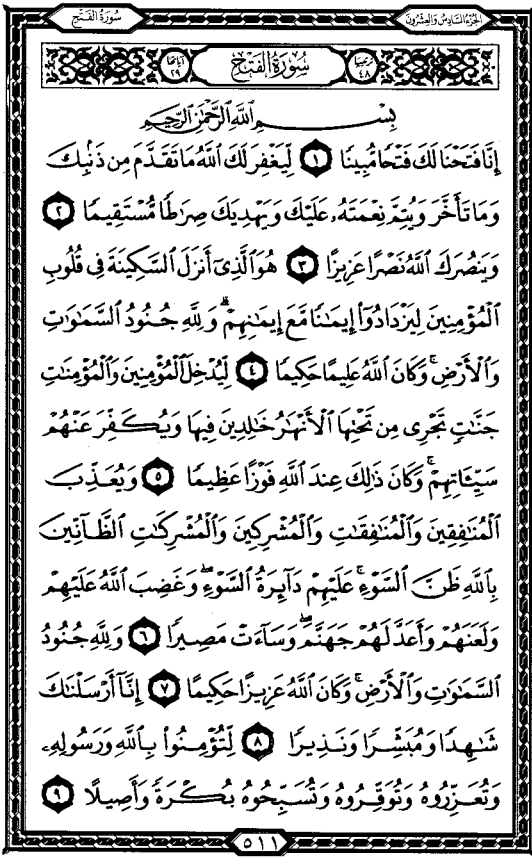 الجزء السادس والعشرون
سورة الفتح
ترتيبها ٤٨
سُورَةُ الْفَتْحِ
آياتها ٢٩
بِسْمِ اللَّهِ الرَّحْمَٰنِ الرَّحِيمِ
إِنَّا فَتَحْنَا لَكَ فَتْحًا مُّبِينًا ١ لِّيَغْفِرَ لَكَ ٱللَّهُ مَا تَقَدَّمَ مِن ذَنۢبِكَ
وَمَا تَأَخَّرَ وَيُتِمَّ نِعْمَتَهُۥ عَلَيْكَ وَيَهْدِيَكَ صِرَٰطًا مُّسْتَقِيمًا ٢
وَيَنصُرَكَ ٱللَّهُ نَصْرًا عَزِيزًا ٣ هُوَ ٱلَّذِىٓ أَنزَلَ ٱلسَّكِينَةَ فِى قُلُوبِ
ٱلْمُؤْمِنِينَ لِيَزْدَادُوٓا۟ إِيمَٰنًا مَّعَ إِيمَٰنِهِمْ ۗ وَلِلَّهِ جُنُودُ ٱلسَّمَٰوَٰتِ
وَٱلْأَرْضِ ۚ وَكَانَ ٱللَّهُ عَلِيمًا حَكِيمًا ٤ لِّيُدْخِلَ ٱلْمُؤْمِنِينَ وَٱلْمُؤْمِنَٰتِ
جَنَّٰتٍ تَجْرِى مِن تَحْتِهَا ٱلْأَنْهَٰرُ خَٰلِدِينَ فِيهَا وَيُكَفِّرَ عَنْهُمْ
سَيِّـَٔاتِهِمْ ۚ وَكَانَ ذَٰلِكَ عِندَ ٱللَّهِ فَوْزًا عَظِيمًا ٥ وَيُعَذِّبَ
ٱلْمُنَٰفِقِينَ وَٱلْمُنَٰفِقَٰتِ وَٱلْمُشْرِكِينَ وَٱلْمُشْرِكَٰتِ ٱلظَّآنِّينَ
بِٱللَّهِ ظَنَّ ٱلسَّوْءِ ۚ عَلَيْهِمْ دَآئِرَةُ ٱلسَّوْءِ ۖ وَغَضِبَ ٱللَّهُ عَلَيْهِمْ
وَلَعَنَهُمْ وَأَعَدَّ لَهُمْ جَهَنَّمَ ۖ وَسَآءَتْ مَصِيرًا ٦ وَلِلَّهِ جُنُودُ
ٱلسَّمَٰوَٰتِ وَٱلْأَرْضِ ۚ وَكَانَ ٱللَّهُ عَزِيزًا حَكِيمًا ٧ إِنَّآ أَرْسَلْنَٰكَ
شَٰهِدًا وَمُبَشِّرًا وَنَذِيرًا ٨ لِّتُؤْمِنُوا۟ بِٱللَّهِ وَرَسُولِهِۦ
وَتُعَزِّرُوهُ وَتُوَقِّرُوهُ وَتُسَبِّحُوهُ بُكْرَةً وَأَصِيلًا ٩
٥١١